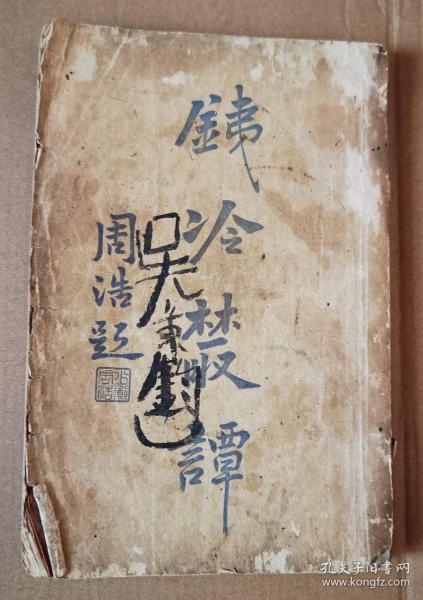 銕冷叢譚
吳秉
周浩題
孔夫子旧书网
www.kongfz.com